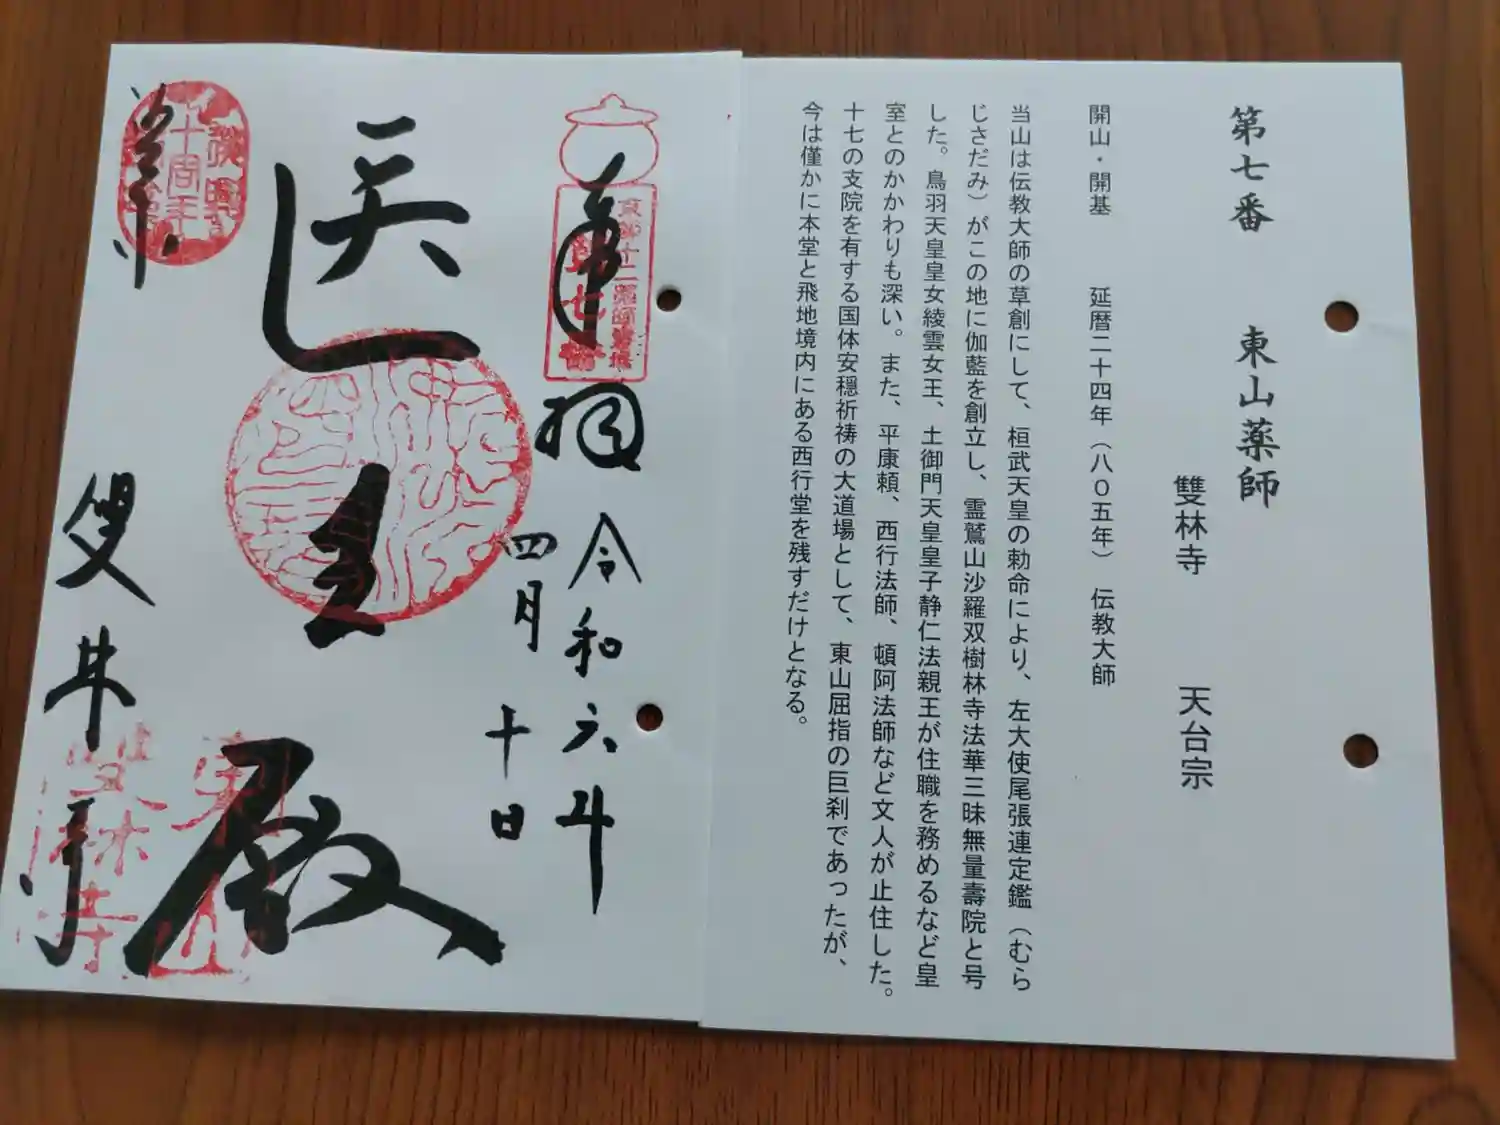 第七番　東山薬師
雙林寺　天台宗
開山・開基　延暦二十四年（八〇五年）　伝教大師
当山は伝教大師の草創にして、桓武天皇の勅命により、左大使尾張連定鑑（むら
じさだみ）がこの地に伽藍を創立し、霊鷲山沙羅双樹林寺法華三昧無量壽院と号
した。鳥羽天皇皇女綾雲女王、土御門天皇皇子静仁法親王が住職を務めるなど皇
室とのかかわりも深い。また、平康頼、西行法師、頓阿法師など文人が止住した。
十七の支院を有する国体安穏祈祷の大道場として、東山屈指の巨刹であったが、
今は僅かに本堂と飛地境内にある西行堂を残すだけとなる。
京都十二薬師霊場
第七番
奉拝
令和六年
四月十日
医王殿
十周年
京
雙林寺
雙林寺